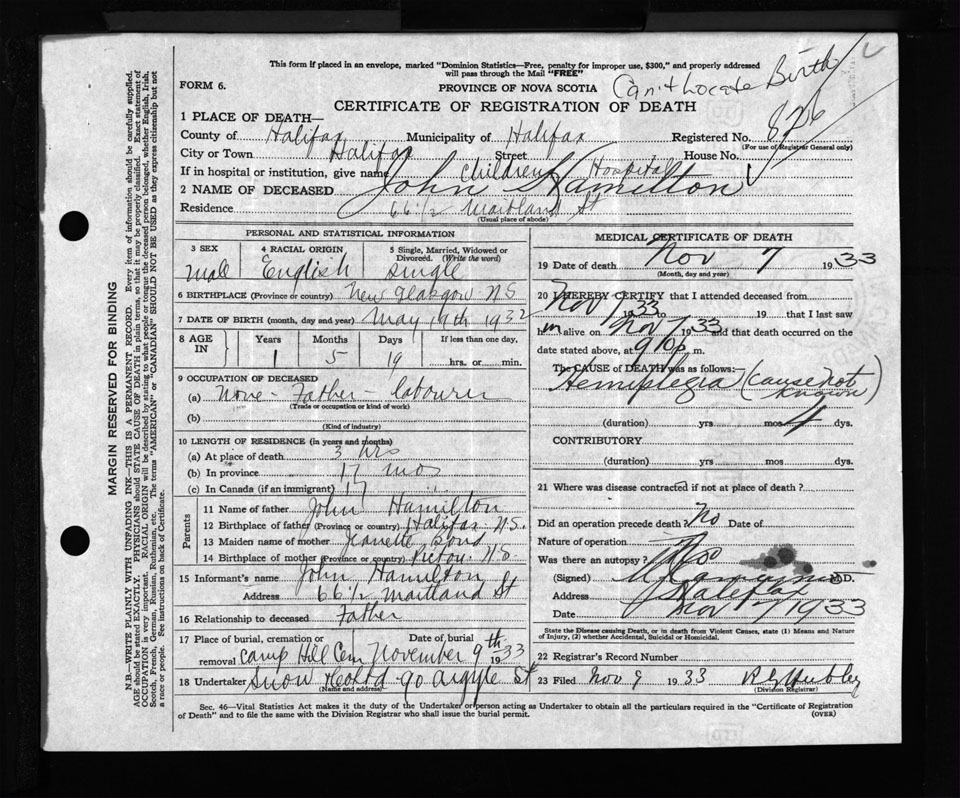 This form if placed in an envelope, marked "Dominion Statistics—Free, penalty for improper use, $300," and properly addressed
will pass through the Mail "FREE"
FORM 6.
PROVINCE OF NOVA SCOTIA
Can't locate Birth
CERTIFICATE OF REGISTRATION OF DEATH
826
1 PLACE OF DEATH—
County of Halifax Municipality of Halifax Registered No.
(For use of Registrar General only)
City or Town Halifax Street House No.
If in hospital or institution, give name Children Hospital
2 NAME OF DECEASED John S Hamilton
Residence 66 1/2 Maitland St
(Usual place of abode)
PERSONAL AND STATISTICAL INFORMATION
3 SEX 4 RACIAL ORIGIN 5 Single, Married, Widowed or Divorced. (Write the word)
male English single
6 BIRTHPLACE (Province or country) New Glasgow N.S
7 DATE OF BIRTH (month, day and year) May 19th 1932
8 AGE IN Years Months Days If less than one day,
1 5 19 hrs. or min.
9 OCCUPATION OF DECEASED
(a) None - Father - labourer
(Trade or occupation or kind of work)
(b)
(Kind of industry)
10 LENGTH OF RESIDENCE (in years and months)
(a) At place of death 3 hrs
(b) In province 17 mos
(c) In Canada (if an immigrant) 17 "
Parents
11 Name of father John Hamilton
12 Birthplace of father (Province or country) Halifax N.S.
13 Maiden name of mother Jeanette Bond
14 Birthplace of mother (Province or country) Pictou N.S.
15 Informant's name John Hamilton
Address 66 1/2 Maitland St
16 Relationship to deceased Father
17 Place of burial, cremation or removal Camp Hill Cem Date of burial November 9th 1933
18 Undertaker Snow & Co Ltd 90 Argyle St
(Name and address)
MEDICAL CERTIFICATE OF DEATH
19 Date of death Nov 7 1933
(Month, day and year)
20 I HEREBY CERTIFY that I attended deceased from
Nov 7 1933 to 19 that I last saw
him alive on Nov 7 1933 and that death occurred on
date stated above, at 9 10 p. m.
The CAUSE of DEATH was as follows:—
Hemiplegia (cause not known)
(duration) yrs mos 4 dys.
CONTRIBUTORY
(duration) yrs. mos. dys.
21 Where was disease contracted if not at place of death?
Did an operation precede death? No Date of
Nature of operation
Was there an autopsy? No
(Signed) M.D.
Address Halifax
Date Nov 7 1933
State the Disease causing Death, or in death from Violent Causes, state (1) Means and Nature
of Injury, (2) whether Accidental, Suicidal or Homicidal.
22 Registrar's Record Number
23 Filed Nov 9 1933
(Division Registrar)
Sec. 46—Vital Statistics Act makes it the duty of the Undertaker or person acting as Undertaker to obtain all the particulars required in the "Certificate of Registration
of Death" and to file the same with the Division Registrar who shall issue the burial permit.
(OVER)
MARGIN RESERVED FOR BINDING
N.B.—WRITE PLAINLY WITH UNFADING INK—THIS IS A PERMANENT RECORD. Every item of information should be carefully supplied.
AGE should be stated EXACTLY. PHYSICIANS should STATE CAUSE OF DEATH in plain terms, so that it may be properly classified. Exact statement of
OCCUPATION is very important. RACIAL ORIGIN will be described by stating to what people or tongue the deceased person belonged, whether English, Irish,
Scotch, French, German, Russian, Ruthenian, etc. The terms "AMERICAN" or "CANADIAN" SHOULD NOT BE USED as they express citizenship but not
a race or people. See instructions on back of Certificate.